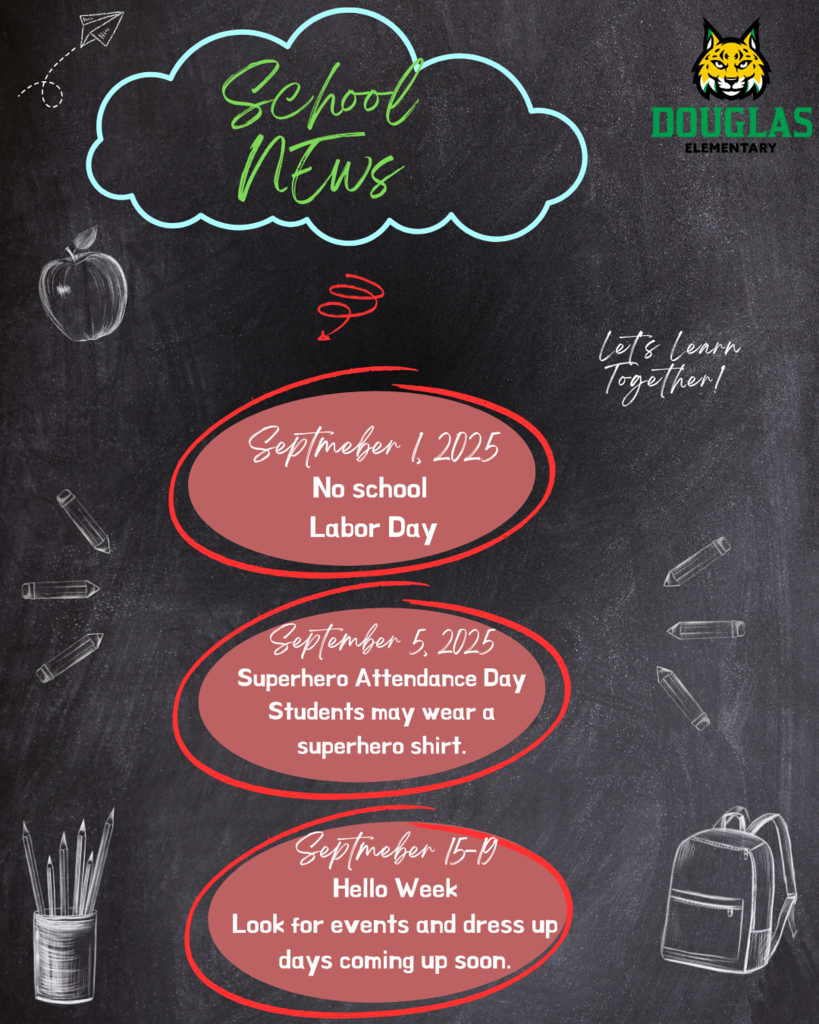 School
NEws
DOUGLAS
ELEMENTARY
Let's Learn
Together!
Septmeber 1, 2025
No school
Labor Day
September 5, 2025
Superhero Attendance Day
Students may wear a
superhero shirt.
Septmeber 15-19
Hello Week
Look for events and dress up
days coming up soon.